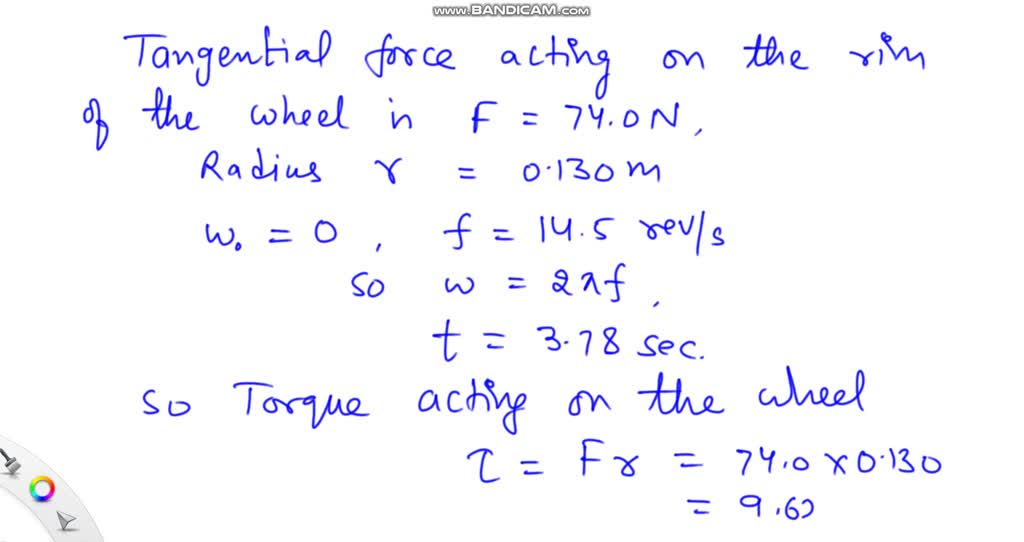 www.BANDICAM.com
Tangential force acting on the rim
of the wheel is F = 74.0 N,
Radius r = 0.130 m
ω₀ = 0, f = 14.5 rev/s
so ω = 2πf,
t = 3.78 sec.
so Torque acting on the wheel
τ = Fr = 74.0 × 0.130
= 9.62